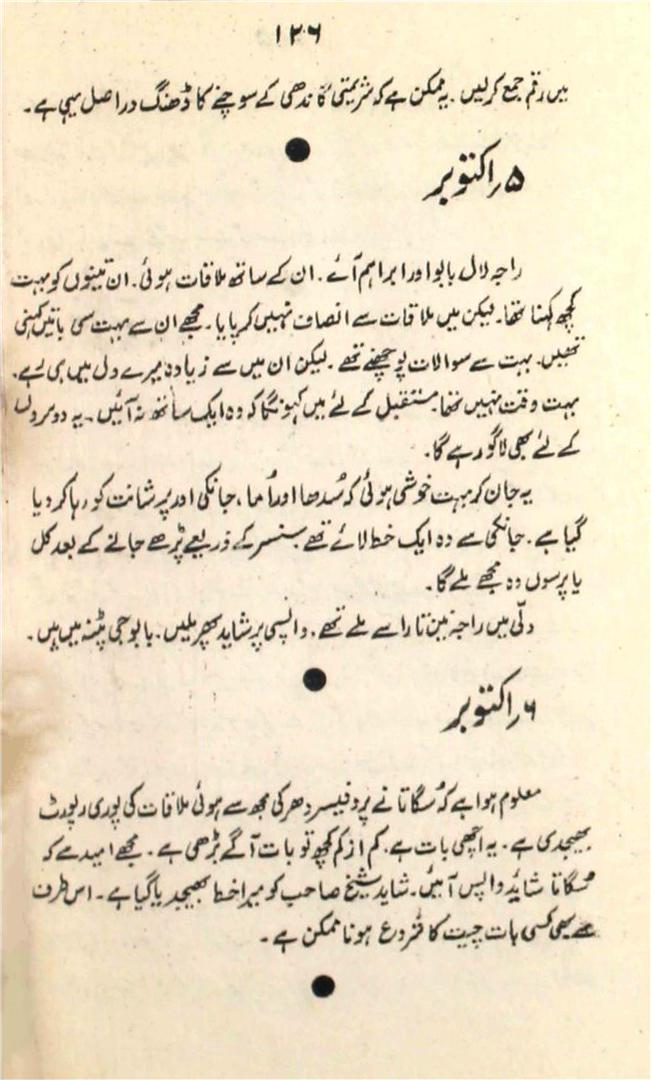 ۱۲۶
میں رقم جمع کرلیں۔ یہ ممکن ہے کہ شریمتی گاندھی کے سوچنے کا ڈھنگ دراصل یہی ہے۔
۵ر اکتوبر
راجہ لال بابو اور ابراہم آئے۔ ان کے ساتھ ملاقات ہوئی۔ ان تینوں کو بہت
کچھ کہنا تھا۔ لیکن میں ملاقات سے انصاف نہیں کر پایا۔ مجھے ان سے بہت سی باتیں کہنی
تھیں۔ بہت سے سوالات پوچھنے تھے۔ لیکن ان میں سے زیادہ میرے دل میں ہی رہے۔
بہت وقت نہیں تھا۔ مستقبل کے لئے میں کہونگا کہ وہ ایک ساتھ نہ آئیں۔ یہ دوسروں
کے لئے بھی لاگو رہے گا۔
یہ جان کر بہت خوشی ہوئی کہ سُدھا اور اُما، جانکی اور پرشانت کو رہا کر دیا
گیا ہے۔ جانکی سے وہ ایک خط لائے تھے۔ سنسر کے ذریعے پڑھے جانے کے بعد کل
یا پرسوں وہ مجھے ملے گا۔
دلّی میں راجہ مین تارا سے ملے تھے۔ واپسی پر شاید پھر ملیں۔ بابو جی پٹنہ میں ہیں۔
۶ر اکتوبر
معلوم ہوا ہے کہ سُگاتا نے پروفیسر دھر کی مجھ سے ہوئی ملاقات کی پوری رپورٹ
بھیجدی ہے۔ یہ اچھی بات ہے۔ کم از کم کچھ تو بات آگے بڑھی ہے۔ مجھے امید ہے کہ
سُگاتا شاید واپس آئیں۔ شاید شیخ صاحب کو میرا خط بھیجدیا گیا ہے۔ اس طرف
سے بھی کسی بات چیت کا شروع ہونا ممکن ہے۔